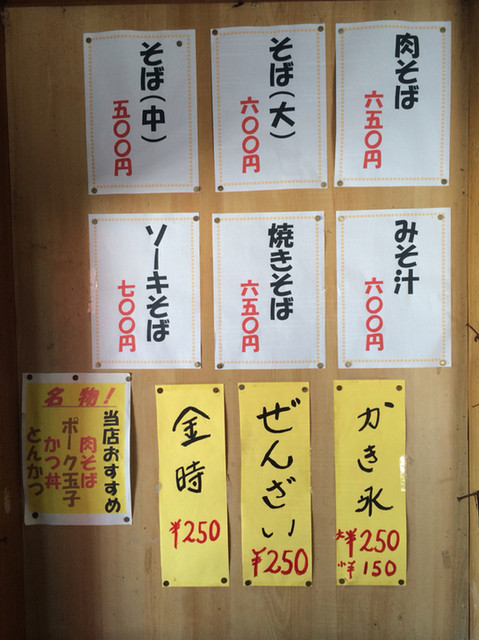 肉そば
六五〇円
そば(大)
六〇〇円
そば(中)
五〇〇円
みそ汁
六〇〇円
焼きそば
六五〇円
ソーキそば
七〇〇円
かき氷
大¥250
小¥150
ぜんざい
¥250
金時
¥250
名物!
当店おすすめ
肉そば
ポーク玉子
かつ丼
とんかつ